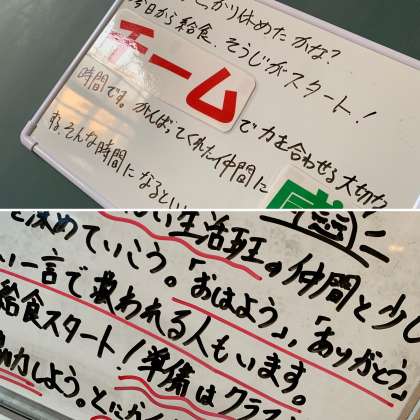 かり休めたかな?
今日から給食、そうじがスタート!
チームで力を合わせる大切な
時間です。がんばってくれた仲間に感謝
する、そんな時間になるとい
い生活班の仲間と少し
深めていこう。「おはよう」、「ありがとう」
い一言で救われる人もいます。
給食スタート!準備はクラ
協力しよう。とにか